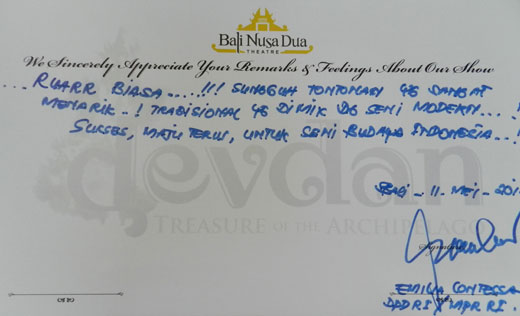 Bali Nusa Dua
THEATRE
We Sincerely Appreciate Your Remarks & Feelings About Our Show
... RUARR BIASA.....!!! SUNGGUH TONTONAN YG SANGAT
MENARIK..! TRADISIONAL YG DIMIK DG SENI MODERN...!
SUKSES, MAJU TERUS, UNTUK SENI BUDAYA INDONESIA...!
devdan
TREASURE OF THE ARCHIPELAGO
BALI - 11 - MEI - 201
Signature
EMILIA CONTESSA
DPD RI / MPR RI.